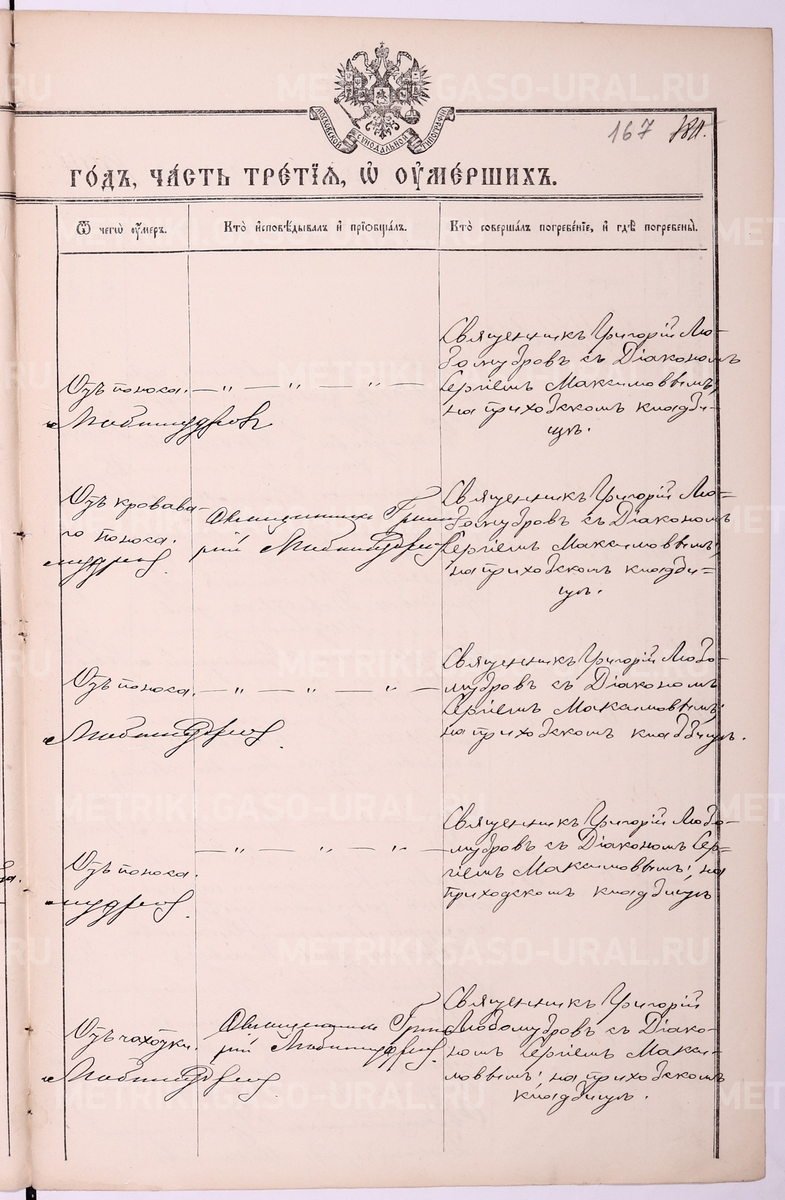 МОСКОВСКОЙ СѴНОДАЛЬНОЙ ТИПОГРАФІИ
167
ГО́ДЪ, ЧА́СТЬ ТРЕ́ТІѦ, Ѡ҆ ОУ҆МЕ́РШИХЪ.
Ѿ чегѡ̀ оу҆́меръ.
Кто̀ и҆сповѣ́дывалъ и҆ прїѡбща́лъ.
Кто̀ соверша́лъ погребе́нїе, и҆ гдѣ̀ погребены̀.
Отъ поноса.
— „ — „ — „ —
Священникъ Григорій Лю-
бомудровъ съ Діакономъ
Сергіемъ Максимовымъ,
на приходскомъ кладби-
щѣ.
Любомудров
Отъ кровава-
го поноса.
Священникъ Григо-
рій Любомудровъ
Священникъ Григорій Лю-
бомудровъ съ Діакономъ
Сергіемъ Максимовымъ,
на приходскомъ кладби-
щѣ.
Отъ поноса.
— „ — „ — „ —
Священникъ Григорій Любо-
мудровъ съ Діакономъ
Сергіемъ Максимовымъ,
на приходскомъ кладбищѣ.
Любомудровъ.
Отъ поноса.
— „ — „ — „ —
Священникъ Григорій Любо-
мудровъ съ Діакономъ Сер-
гіемъ Максимовымъ, на
приходскомъ кладбищѣ
Отъ чахотки
Священникъ Григо-
рій Любомудровъ
Священникъ Григорій
Любомудровъ съ Діако-
номъ Сергіемъ Макси-
мовымъ, на приходскомъ
кладбищѣ.
Любомудровъ
METRIKI.GASO-URAL.RU